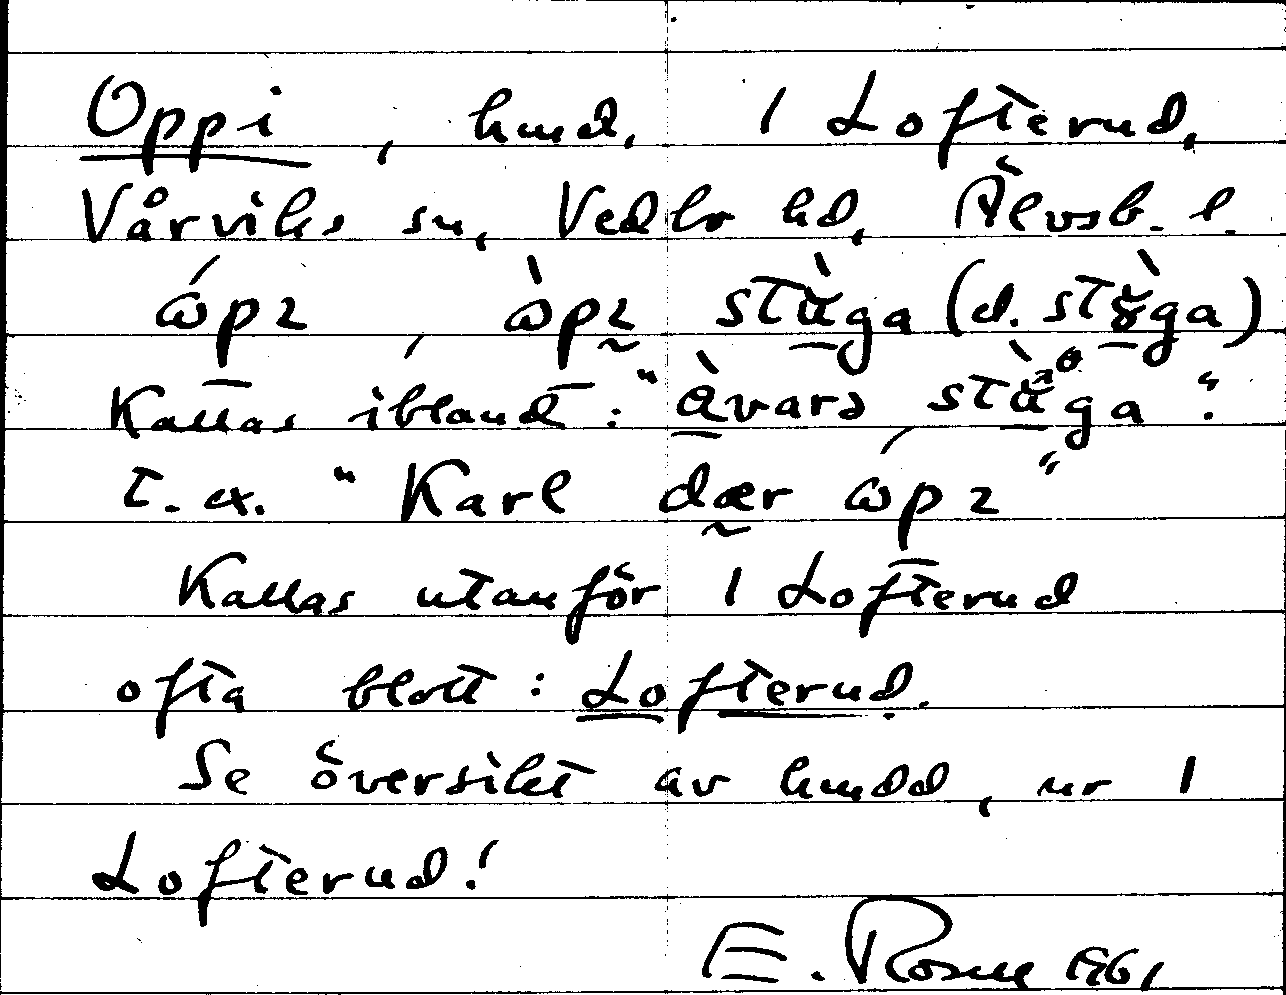 Oppi, hmd, 1 Lofterud,
Vårviks sn, Vedbo hd, Älvsb. l.
ώpɩ, ὼpɩ stùga (d. stỳga)
Kallas ibland: "àvars stùga".
T.ex. "Karl dær ώpɩ"
Kallas utanför 1 Lofterud
ofta blott: Lofterud.
Se översikt av hmdd, nr 1
Lofterud!
E. Rosell 1961